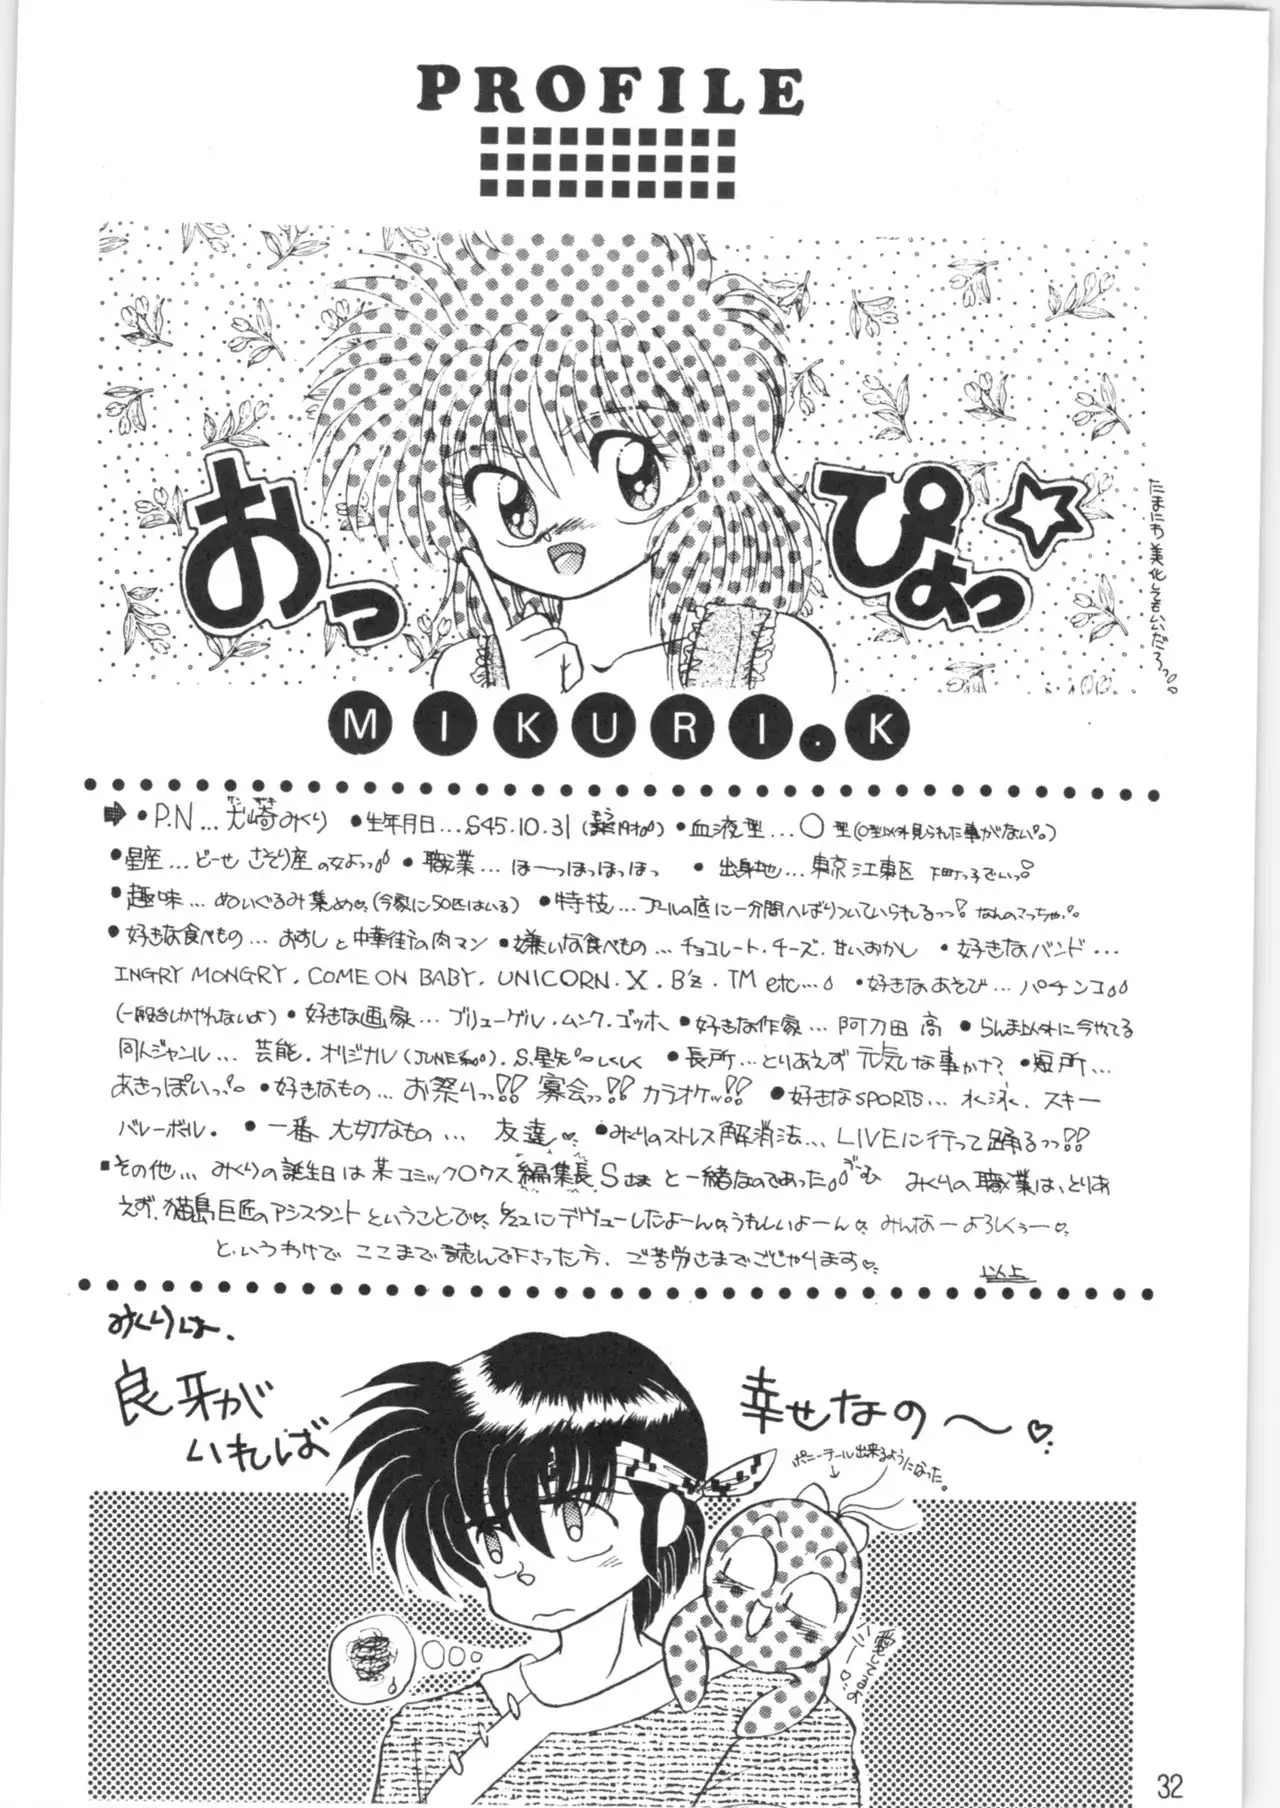 PROFILE
おっ
ぴょっ☆
たまにわ美化してもいいだろっ
MIKURI.K
•P.N...犬崎みくり •生年月日...S45.10.31 •血液型...O型(O型以外見られた事がない)
•星座...どーせさそり座の女よっ •職業...ほーっほっほっほっ •出身地...東京江東区 下町っ子でいっ
•趣味...ぬいぐるみ集め♡(今家に50匹はいる) •特技...プールの底に一分間へばりついていられるっっ! なんのこっちゃ
•好きな食べもの...おすしと中華街の肉マン •嫌いな食べもの...チョコレート・チーズ・甘いおかし •好きなバンド...
INGRY MONGRY. COME ON BABY. UNICORN. X. B'z. TM etc...。 •好きなあそび...パチンコ
(一段台しかやれないよ) •好きな画家...ブリューゲル・ムンク・ゴッホ •好きな作家...阿刀田 高 •らんま以外に今やてる
同人ジャンル...芸能. オリジナル(JUNE系). S.星矢 しくしく •長所...とりあえず元気な事かナ? •短所...
あきっぽいっ •好きなもの...お祭りっっ!! 宴会っっ!! カラオケッ!! •好きなSPORTS...水泳、スキー
バレーボル. •一番大切なもの...友達♡ •みくりのストレス解消法...LIVEに行って踊るっっ!!
▪その他...みくりの誕生日は某コミック〇ウス編集長Sさまと一緒なのであった みくりの職業は、とりあ
えず、猫島巨匠のアシスタントということで♡ 6/22にデヴューしたよーん♡うれしいよーん♡ みんなーよろしくぅー♡
というわけで ここまで読んで下さった方、ご苦労さまでごじゃります♡ 以上
みくりは、
良牙が
いれば
幸せなの〜♡
ポニーテール出来るようになった。
32